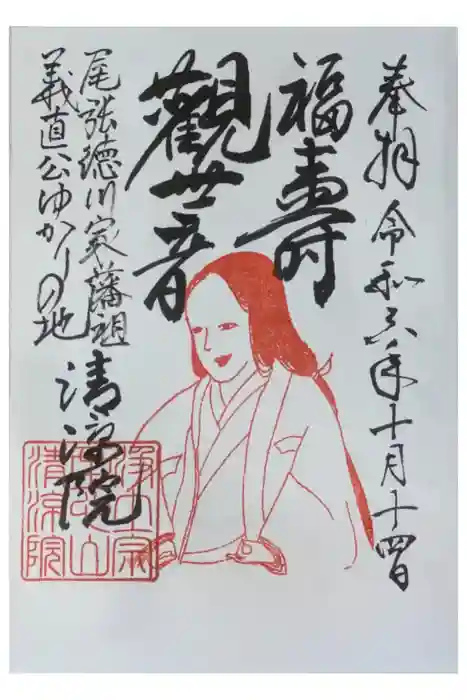 奉拝 令和六年十月十四日
福壽
觀世音
尾張徳川家藩祖
義直公ゆかりの地
清涼院
浄土宗
清涼院